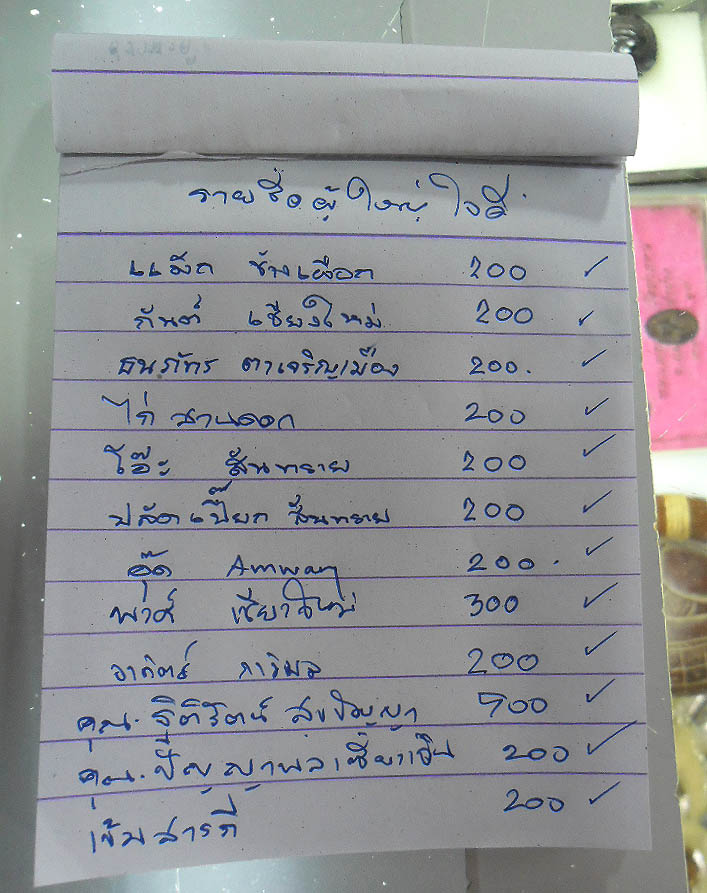 รายชื่อผู้ใหญ่ใจดี
แม็ก ช้างเผือก 200 ✓
กันต์ เชียงใหม่ 200 ✓
ธนภัทร ตาเจริญเมือง 200. ✓
ไก่ สวนดอก 200 ✓
โอ๊ะ สันทราย 200 ✓
ปลัดเปี๊ยก สันทราย 200 ✓
อุ๊ด Amway 200. ✓
พาศ์ เชียงใหม่ 300 ✓
อาทิตย์ 200 ✓
คุณ.ฐิติรัตน์ สุขปัญญา 700 ✓
คุณ.ปัญญาพล 200 ✓
เข้มสารภี 200 ✓